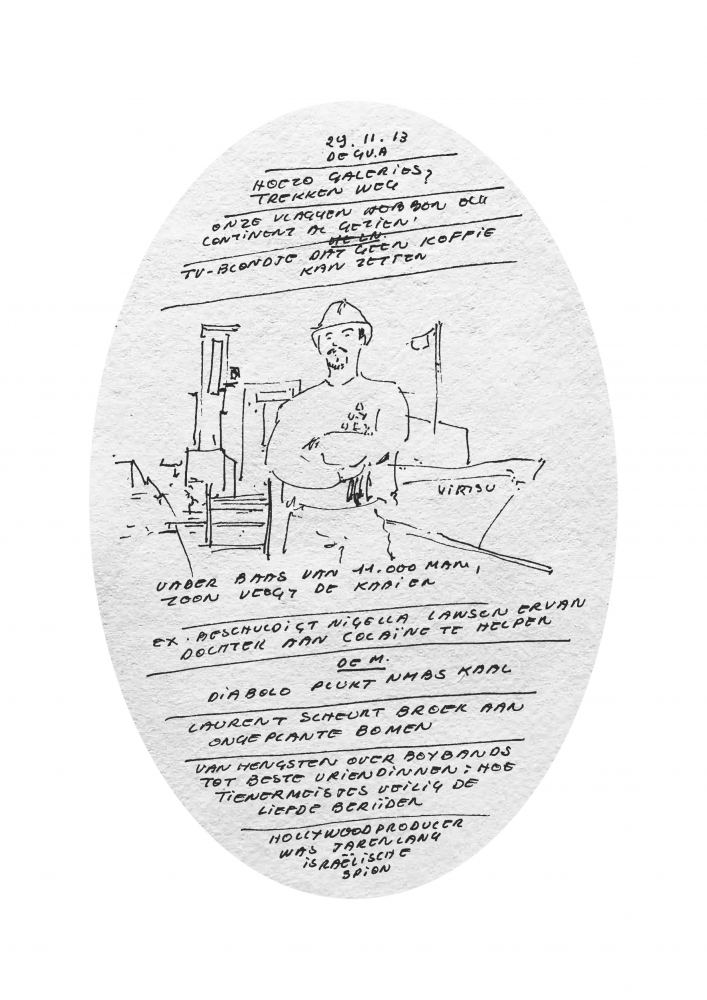 29.11.13
DE GV.A
HOEZO GALERIES?
TREKKEN WEG
ONZE VLAGGEN HEBBEN ELK
CONTINENT AL GEZIEN!
HE LN.
TV-BLONDJE DAT GEEN KOFFIE
KAN ZETTEN
VIRTSU
VADER BAAS VAN 11.000 MAN,
ZOON VEEGT DE KAAIEN
EX. BESCHULDIGT NIGELLA LAWSON ERVAN
DOCHTER AAN COCAÏNE TE HELPEN
DE M.
DIABOLO PLUKT NMBS KAAL
LAURENT SCHEURT BROEK AAN
ONGEPLANTE BOMEN
VAN HENGSTEN OVER BOYBANDS
TOT BESTE VRIENDINNEN: HOE
TIENERMEISJES VEILIG DE
LIEFDE BERIJDEN
HOLLYWOODPRODUCER
WAS JARENLANG
ISRAËLISCHE
SPION